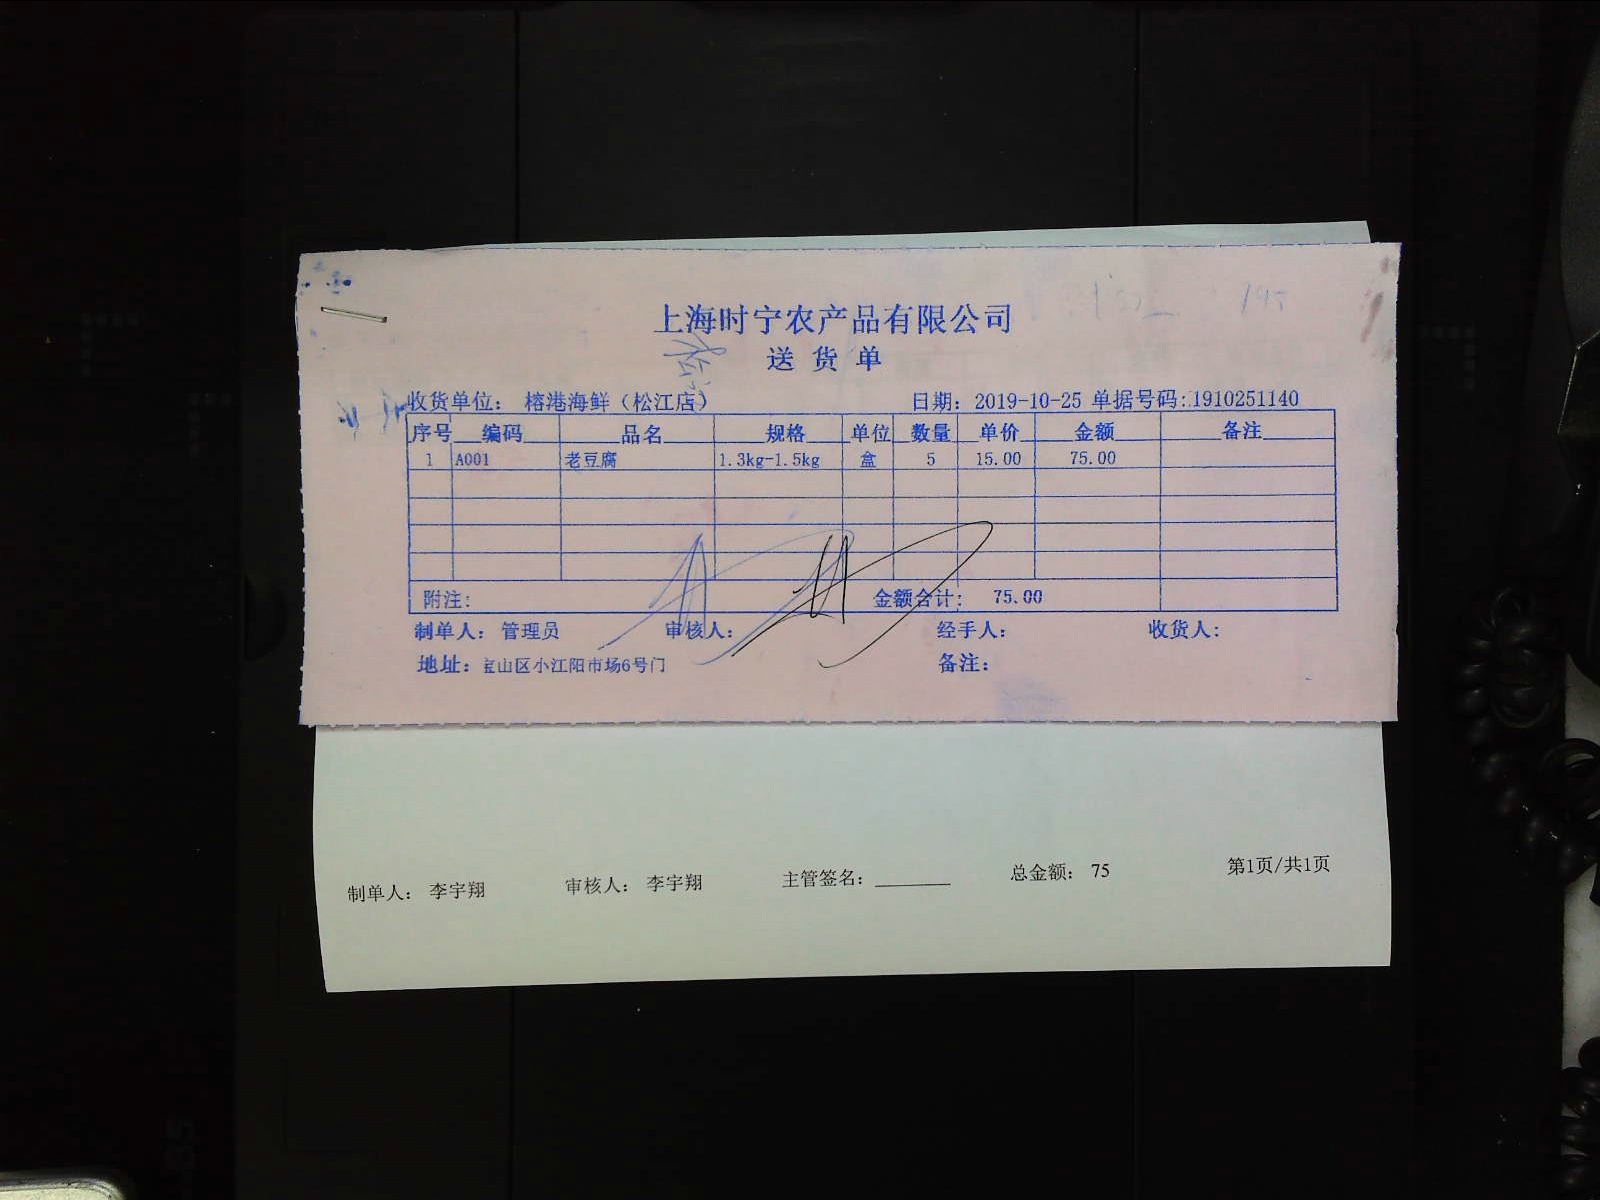 上海时宁农产品有限公司
送货单
收货单位： 榕港海鲜（松江店） 日期： 2019-10-25 单据号码：1910251140
序号 编码 品名 规格 单位 数量 单价 金额 备注
1 A001 老豆腐 1.3kg-1.5kg 盒 5 15.00 75.00
附注： 金额合计： 75.00
制单人： 管理员 审核人： 经手人： 收货人：
地址： 宝山区小江阳市场6号门 备注：
制单人： 李宇翔 审核人： 李宇翔 主管签名： ________ 总金额： 75 第1页/共1页